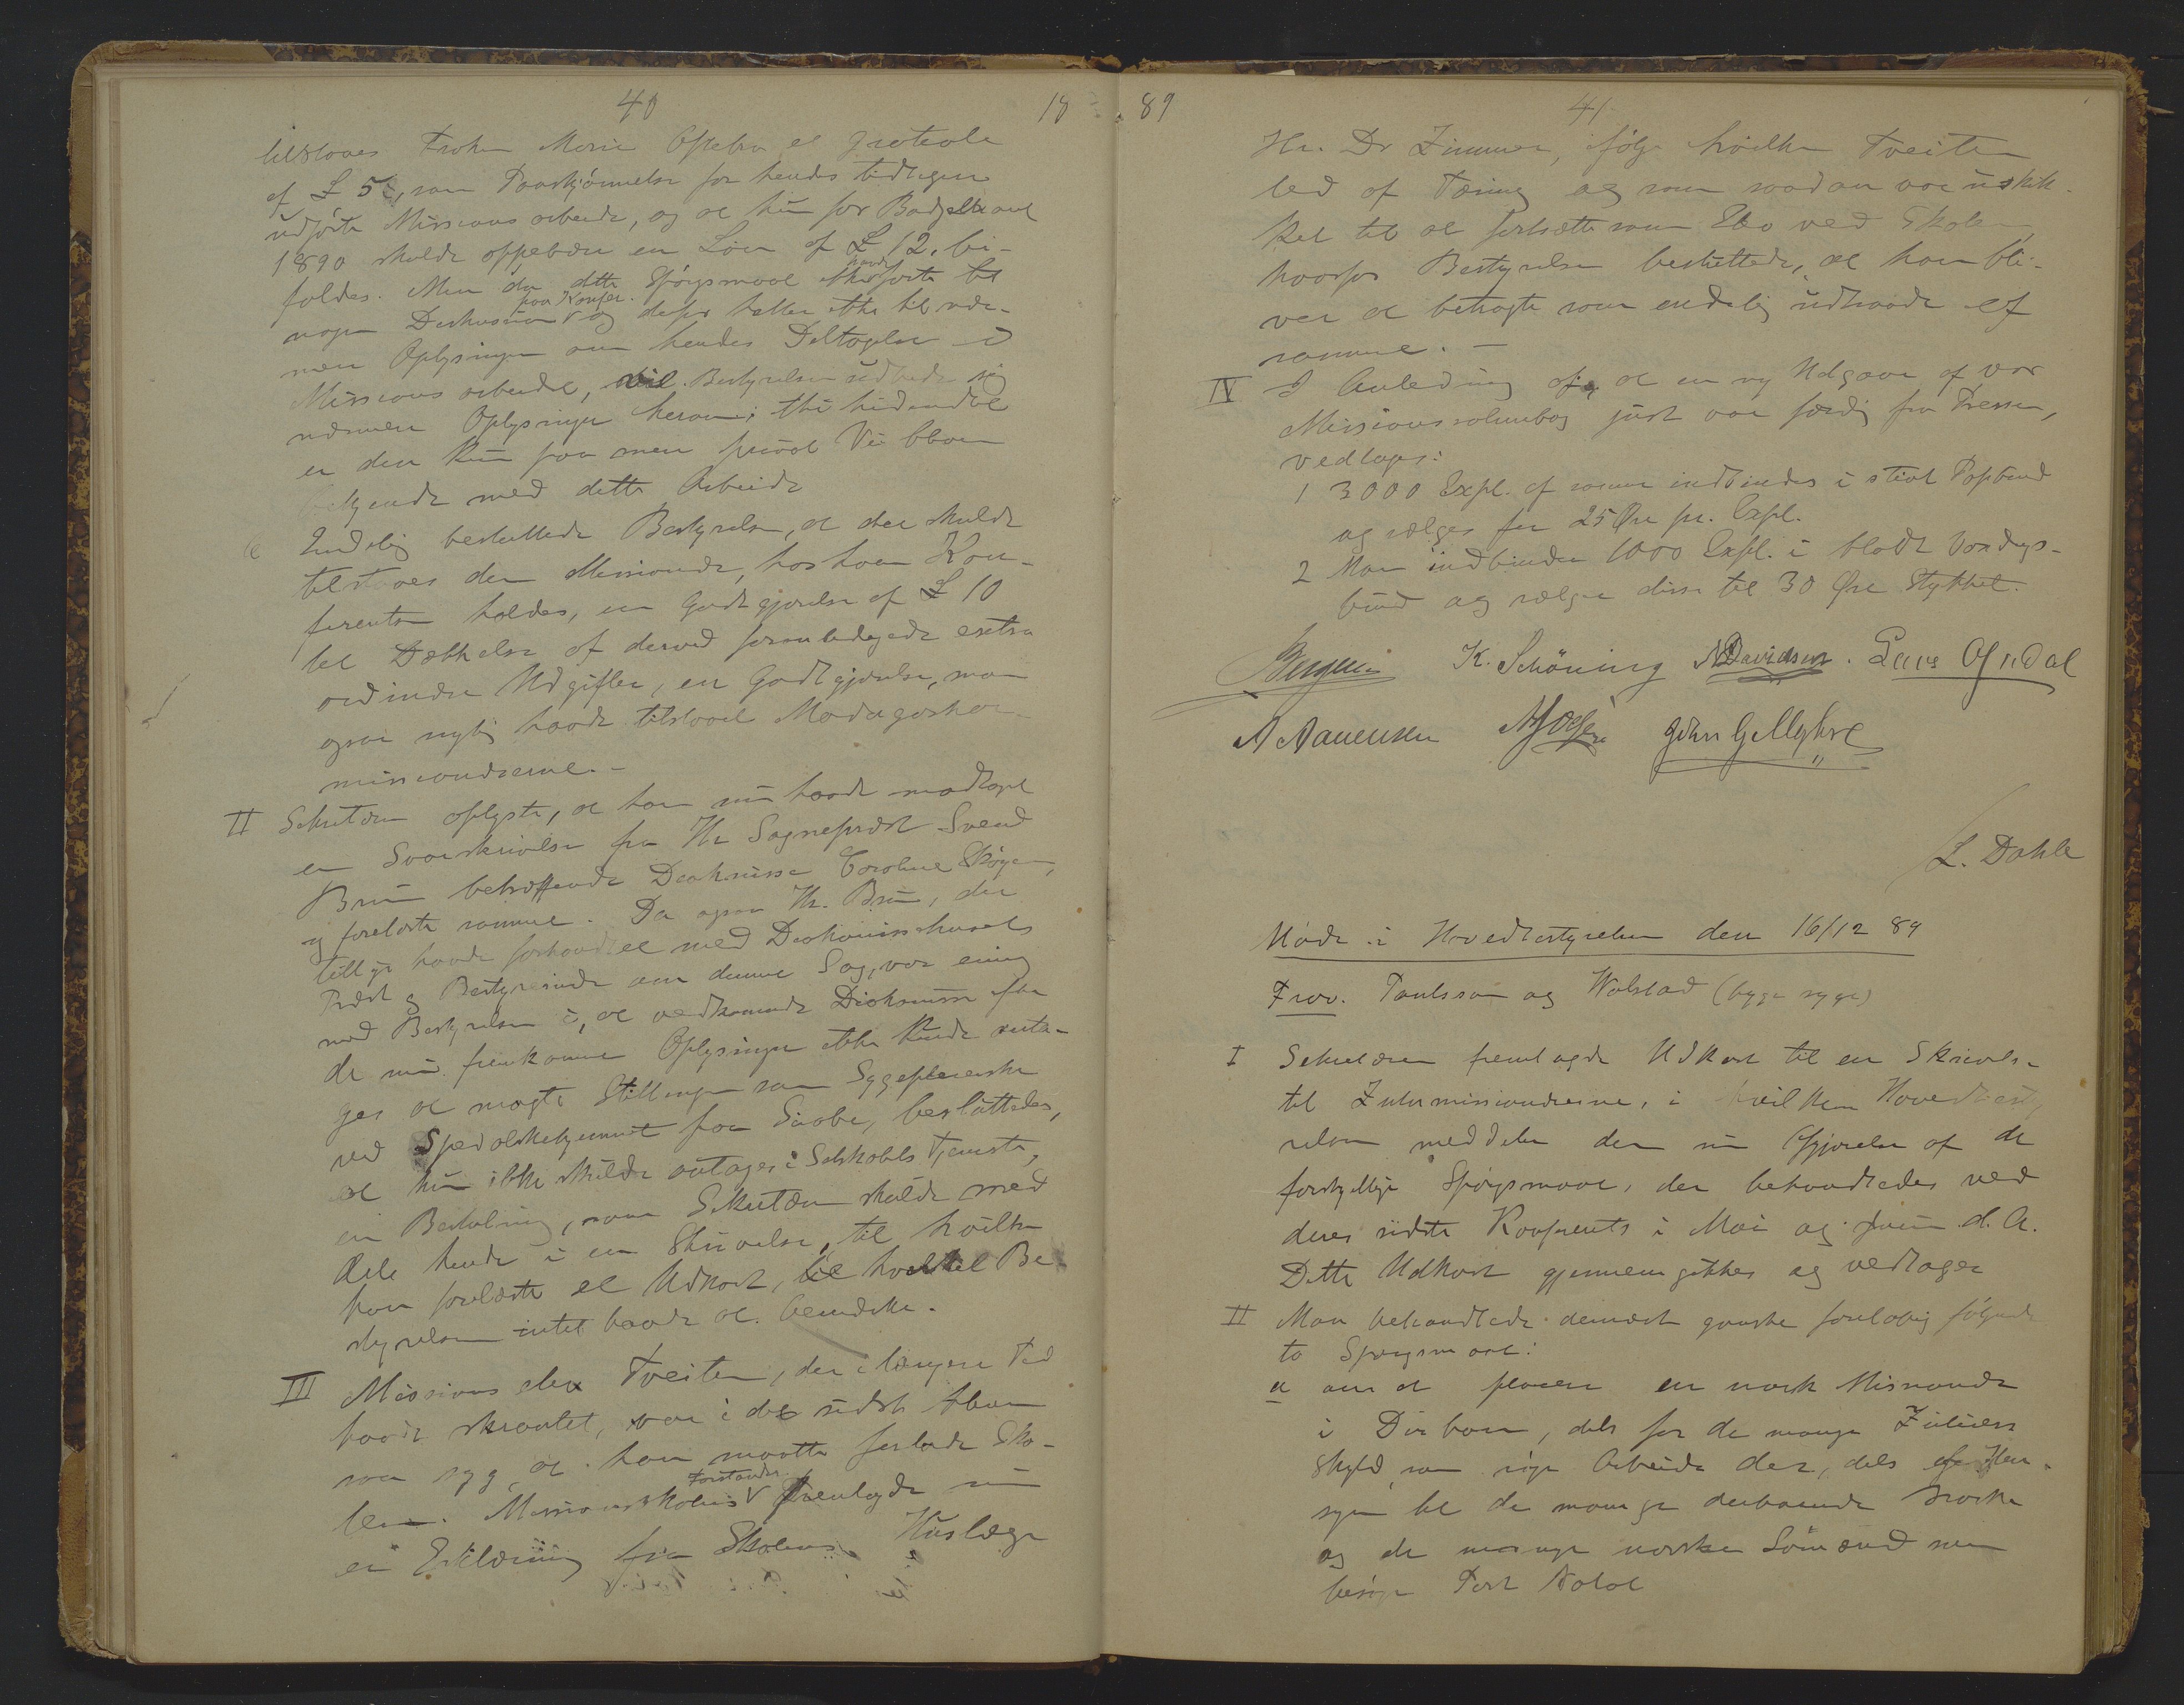 40
18
tilstaaes Frøken Marie Aftebro et gratiale
af £ 5, som Paaskjønnelse for hendes tidligere
udførte Missionsarbeide, og at hun for Budgetaaret
1890 skulde oppebære en Løn af £ 12, bi-
faldes. Men da dette Spørgsmaal ikke havde ført til
nogen Diskussion paa Konfer. og derfor heller ikke til nær-
mere Oplysninger om hendes Deltagelse i
Missionsarbeidet, vil Bestyrelsen udbede sig
nærmere Oplysninger herom; thi hidindtil
er den kun paa mere privat Vei bleven
bekjendt med dette Arbeide
Endelig besluttede Bestyrelsen, at der skulde
tilstaaes den Missionær, hos hvem Kon-
ferentsen holdes, en Godtgjørelse af £ 10
til Dækkelse af derved foranledigede extra
ordinære Udgifter, en Godtgjørelse, man
ogsaa nylig havde tilstaaet Madagaskar-
missionærerne. -
II Sekretæren oplyste, at han nu havde modtaget
en Svarskrivelse fra Hr Sogneprest Svend
Brun betræffende Diakonisse Caroline Skogen,
og forelæste samme. Da ogsaa Hr. Brun, der
tillige havde forhandlet med Diakonissehusets
Prest og Bestyrerinde om denne Sag, var enig
med Bestyrelsen i, at vedkommende Diakonisse efter
de nu fremkomne Oplysninger ikke kunde anta-
ges at magte Stillingen som Sygepleierske
ved Spedalskehjemmet paa Sirabe, besluttedes,
at hun ikke skulde antages i Selskabets Tjeneste,
en Beslutning, som Sekretæren skulde med
dele hende i en Skrivelse, til hvilken
han forelæste et Udkast, til hvilket Be-
styrelsen intet havde at bemerke.
III Missionselev Tveiten, der i længere Tid
havde skrantet, var i det sidste bleven
saa syg, at han maatte forlade Sko-
len. Missionsskolens Forstander fremlagde nu
en Erklæring fra Skolens Huslæge
89
41
Hr. Dr Zimmer, ifølge hvilken Tveiten
led af Tæring og som saadan var uskik-
ket til at fortsætte som Elev ved Skolen
hvorfor Bestyrelsen besluttede, at han bli-
ver at betragte som endelig udtraadt af
samme. -
IV I Anledning af, at en ny Udgave af vor
Missionssalmebog just var færdig fra Pressen,
vedtoges:
1 3000 Expl. af samme indbindes i stivt Papbind
og sælges for 25 Øre pr. Expl.
2 Man indbinder 1000 Expl. i blødt Voxdugs-
bind og sælger disse til 30 Øre Stykket.
K. Schöning N Davidsen. Lars Oftedal
A Aanensen John G. Mykre
L. Dahle
Møde i Hovedbestyrelsen den 16/12 89
Frav. Paulsson og Walstad (begge syge)
I Sekretæren fremlagde Udkast til en Skrivelse
til Zulumissionærerne, i hvilken Hovedbesty
relsen meddeler den sin Afgjørelse af de
forskjellige Spørgsmaal, der behandledes ved
deres sidste Konferents i Mai og Juni d. A.
Dette Udkast gjennemgikkes og vedtages
II Man behandlede dernæst ganske foreløbig følgende
to Spørgsmaal:
a om at placere en norsk Missionær
i Durban, dels for de mange Zuluers
Skyld, som søge Arbeide der, dels af Hen-
syn til de mange derboende Norske
og de mange norske Sømænd som
besøge Port Natal